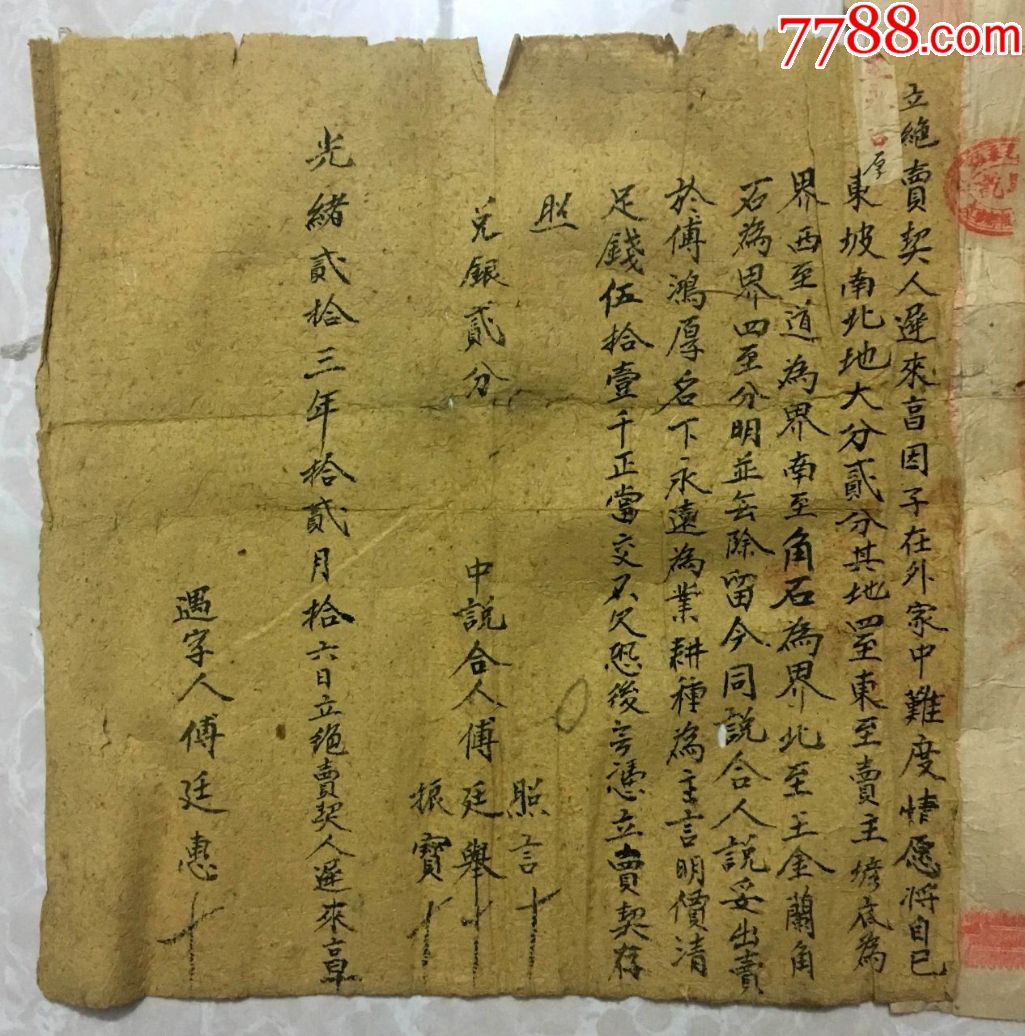 7788.com
立絕賣契人遲來富因子在外家中難度情愿将自己
東坡南北地大分貳分其地四至東至賣主塝底為
界西至道為界南至角石為界北至王金蘭角
石為界四至分明並無除留今同說合人說妥出賣
於傅鴻厚名下永遠為業耕種為主言明價清
足錢伍拾壹千正當交不欠恐後無憑立賣契存
照
兌銀貳分
照言十
中說合人傅廷舉十
振寶十
光緒貳拾三年拾貳月拾六日立絕賣契人遲來
遇字人傅廷惠十
厚